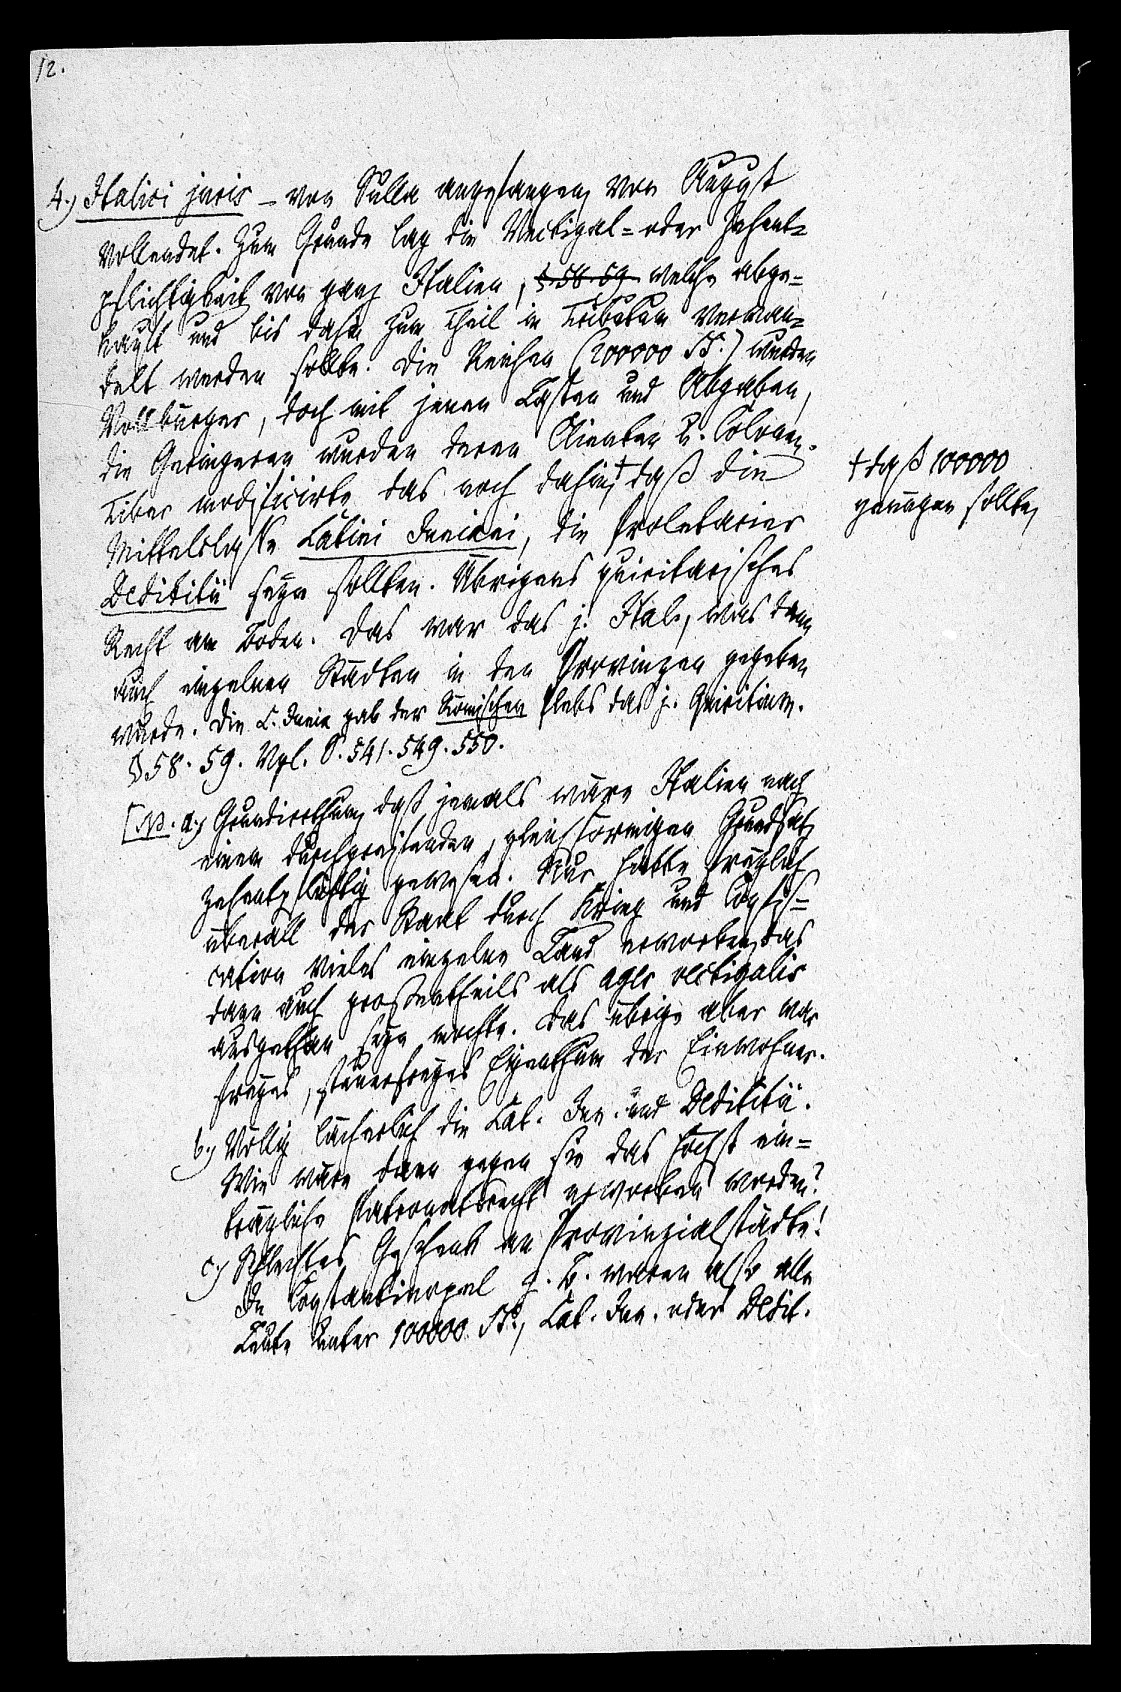 12.
4.) Italici juris – von Sulla angefangen, von August
vollendet. Zum Grunde lag die Vectigal= oder Zehent=
pflichtigkeit von ganz Italien, § 58. 59 welche abge=
kauft und bis dahin zum Theil in Tributum verwan=
delt werden sollte. Die Reichen (200000 HS.) wurden
Vollbürger, doch mit jenen Lasten und Abgaben,
die Geringeren wurden deren Clienten u. Colonen.
Tiber modificirte das noch dahin, † daß die
Mittelclasse Latini Juniani, die Proletarier
Dediticii seyn sollten. Übrigens quiritarisches
Recht am Boden. Das war das j. Ital., was dann
auch einzelnen Städten in den Provinzen gegeben
wurde. Die L. Junia gab der Römischen Plebs das j. Quiritium.
§ 58. 59. Vgl. S. 541. 549. 550.
† daß 100000
genügen sollte,
[NB. a.) Grundirrthum, daß jemals wäre Italien nach
einem durchgreifenden, gleichförmigen Grundsatz
zehentpflichtig gewesen. Nur hatte freylich
überall der Staat durch Krieg und Confis=
cation vieles einzelne Land erworben, das
dann auch großentheils als ager vectigalis
ausgethan seyn mochte. Das übrige aber war
freyes, steuerfreyes Eigenthum der Einwohner.
b.) Völlig lächerlich die Lat. Jun. und Dediticii.
Wie wäre denn gegen sie das höchst ein=
trägliche Patronatsrecht erworben worden?
c.) Schlechtes Geschenk an Provinzialstädte!
In Constantinopel z. B. waren also alle
Leute unter 100000 HS., Lat. Jun. oder Dedit.